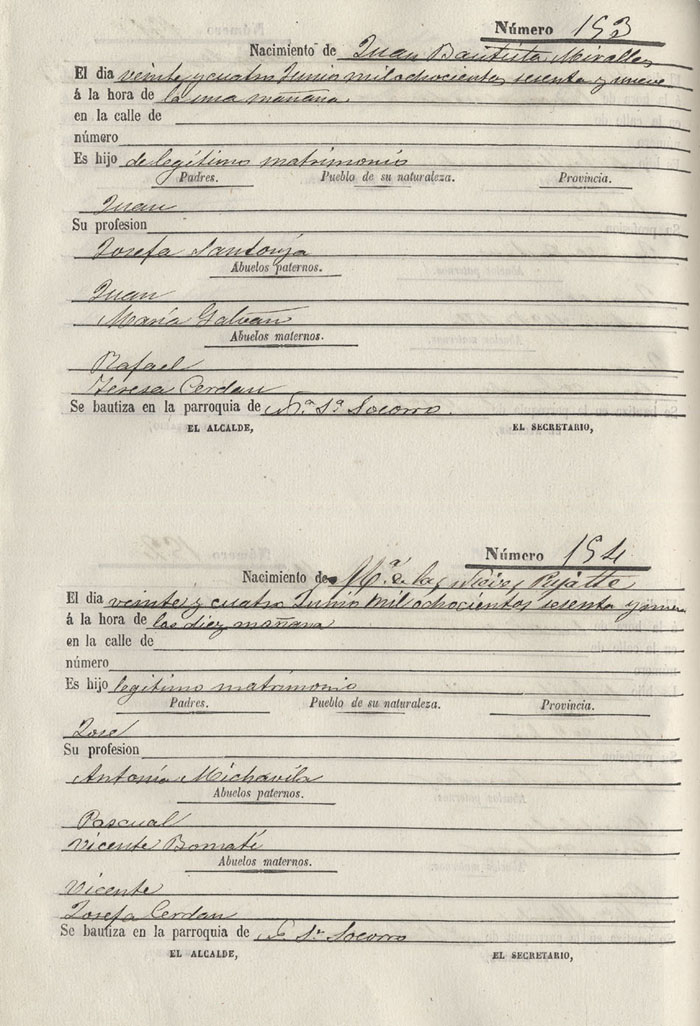 Número 193
Nacimiento de Juan Bautista Miralles
El dia veinte y cuatro Junio mil ochocientos sesenta y nueve
á la hora de la una mañana
en la calle de
número
Es hijo de legítimo matrimonio
Padres. Pueblo de su naturaleza. Provincia.
Juan
Su profesion
Josefa Santonja
Abuelos paternos.
Juan
María Galvañ
Abuelos maternos.
Rafael
Teresa Cerdan
Se bautiza en la parroquia de N.ª S.ª Socorro.
EL ALCALDE, EL SECRETARIO,
Número 194
Nacimiento de M.ª de las Nieves
El dia veinte y cuatro Junio mil ochocientos sesenta y nueve
á la hora de las diez mañana
en la calle de
número
Es hijo legitimo matrimonio
Padres. Pueblo de su naturaleza. Provincia.
José
Su profesion
Antonia Michavila
Abuelos paternos.
Pascual
Vicente Bomatí
Abuelos maternos.
Vicente
Josefa Cerdan
Se bautiza en la parroquia de Socorro
EL ALCALDE, EL SECRETARIO,